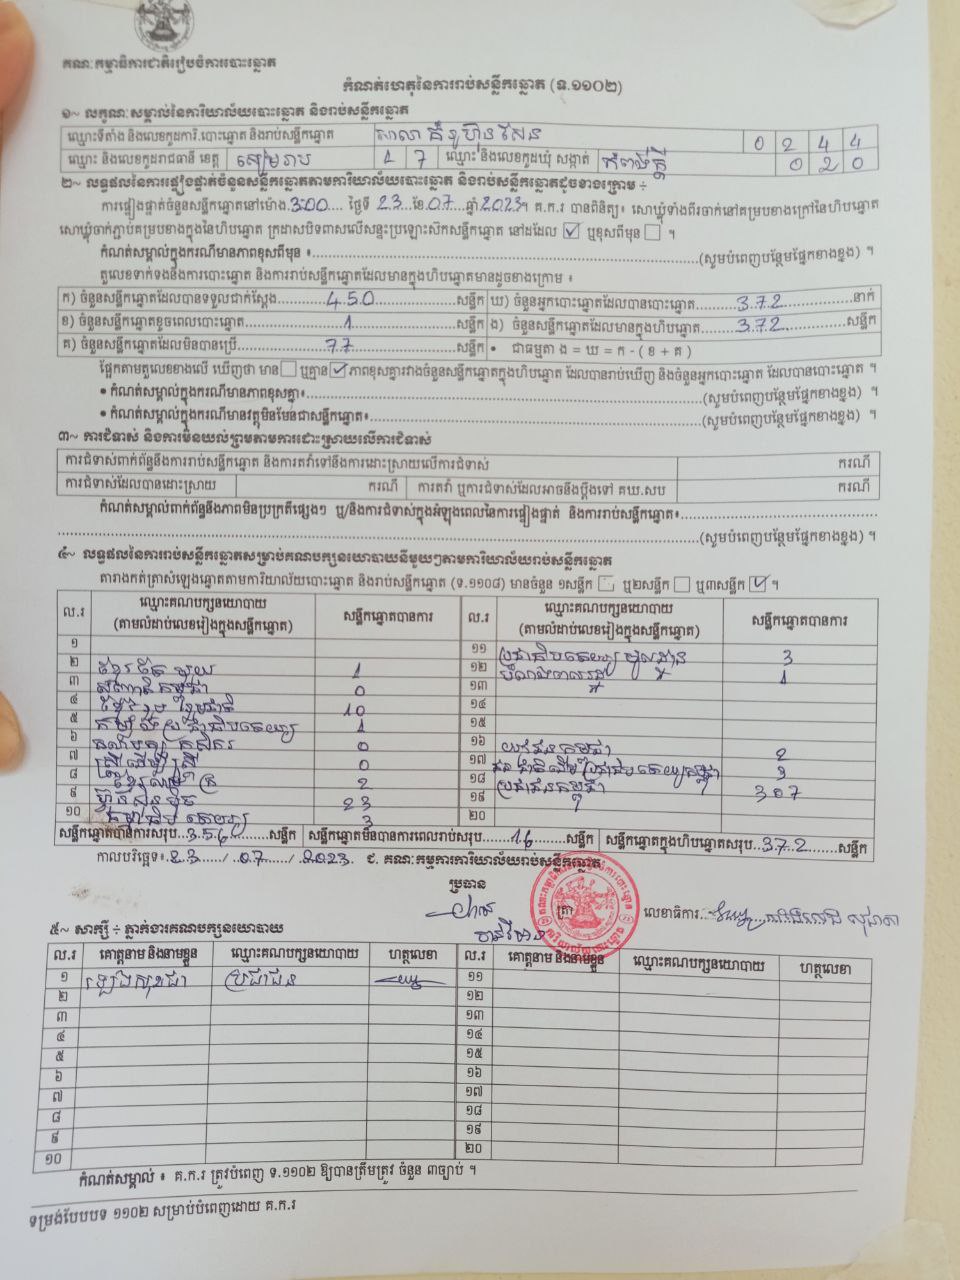 គណៈកម្មាធិការជាតិរៀបចំការបោះឆ្នោត
កំណត់ហេតុនៃការរាប់សន្លឹកឆ្នោត (ទ.១១០២)
១~ លក្ខណៈសម្គាល់នៃការិយាល័យបោះឆ្នោត និងរាប់សន្លឹកឆ្នោត
ឈ្មោះទីតាំង និងលេខកូដការិ.បោះឆ្នោត និងរាប់សន្លឹកឆ្នោត សាលា គំរូហ៊ុន សែន 0 2 4 4
ឈ្មោះ និងលេខកូដរាជធានី ខេត្ត សៀមរាប 1 7 ឈ្មោះ និងលេខកូដឃុំ សង្កាត់ កំពង់ក្តី 0 2 0
២~ លទ្ធផលនៃការផ្ទៀងផ្ទាត់ចំនួនសន្លឹកឆ្នោតតាមការិយាល័យបោះឆ្នោត និងរាប់សន្លឹកឆ្នោតដូចខាងក្រោម ÷
ការផ្ទៀងផ្ទាត់ចំនួនសន្លឹកឆ្នោតនៅម៉ោង 3:00 ថ្ងៃទី 23 ខែ 07 ឆ្នាំ 2023។ គ.ក.រ បានពិនិត្យ៖ សោឃ្នុំទាំងពីរចាក់នៅគម្របខាងក្រៅនៃហិបឆ្នោត
សោឃ្នុំចាក់ភ្ជាប់គម្របខាងក្នុងនៃហិបឆ្នោត ក្រដាសបិទពាសលើសន្ទះប្រឡោះស៊កសន្លឹកឆ្នោត នៅដដែល ☑ ឬខុសពីមុន ☐ ។
កំណត់សម្គាល់ក្នុងករណីមានភាពខុសពីមុន ៖ (សូមបំពេញបន្ថែមផ្នែកខាងខ្នង) ។
តួលេខទាក់ទងនឹងការបោះឆ្នោត និងការរាប់សន្លឹកឆ្នោតដែលមានក្នុងហិបឆ្នោតមានដូចខាងក្រោម ៖
ក) ចំនួនសន្លឹកឆ្នោតដែលបានទទួលជាក់ស្តែង 450 សន្លឹក ឃ) ចំនួនអ្នកបោះឆ្នោតដែលបានបោះឆ្នោត 372 នាក់
ខ) ចំនួនសន្លឹកឆ្នោតខូចពេលបោះឆ្នោត 1 សន្លឹក ង) ចំនួនសន្លឹកឆ្នោតដែលមានក្នុងហិបឆ្នោត 372 សន្លឹក
គ) ចំនួនសន្លឹកឆ្នោតដែលមិនបានប្រើ 77 សន្លឹក • ជាធម្មតា ង = ឃ = ក - ( ខ + គ )
ផ្អែកតាមតួលេខខាងលើ ឃើញថា មាន ☐ ឬគ្មាន ☑ ភាពខុសគ្នារវាងចំនួនសន្លឹកឆ្នោតក្នុងហិបឆ្នោត ដែលបានរាប់ឃើញ និងចំនួនអ្នកបោះឆ្នោត ដែលបានបោះឆ្នោត ។
• កំណត់សម្គាល់ក្នុងករណីមានភាពខុសគ្នា៖ (សូមបំពេញបន្ថែមផ្នែកខាងខ្នង) ។
• កំណត់សម្គាល់ក្នុងករណីមានវត្ថុមិនមែនជាសន្លឹកឆ្នោត៖ (សូមបំពេញបន្ថែមផ្នែកខាងខ្នង) ។
៣~ ការជំទាស់ និងការមិនយល់ព្រមតាមការដោះស្រាយលើការជំទាស់
ការជំទាស់ពាក់ព័ន្ធនឹងការរាប់សន្លឹកឆ្នោត និងការតវ៉ាទៅនឹងការដោះស្រាយលើការជំទាស់ ករណី
ការជំទាស់ដែលបានដោះស្រាយ ករណី ការតវ៉ា ឬការជំទាស់ដែលអាចនឹងប្តឹងទៅ គឃ.សប ករណី
កំណត់សម្គាល់ពាក់ព័ន្ធនឹងភាពមិនប្រក្រតីផ្សេងៗ ឬ/និងការជំទាស់ក្នុងអំឡុងពេលនៃការផ្ទៀងផ្ទាត់ និងការរាប់សន្លឹកឆ្នោត៖
(សូមបំពេញបន្ថែមផ្នែកខាងខ្នង) ។
៤~ លទ្ធផលនៃការរាប់សន្លឹកឆ្នោតសម្រាប់គណបក្សនយោបាយនីមួយៗតាមការិយាល័យរាប់សន្លឹកឆ្នោត
តារាងកត់ត្រាសំឡេងឆ្នោតតាមការិយាល័យបោះឆ្នោត និងរាប់សន្លឹកឆ្នោត (ទ.១១០៨) មានចំនួន ១សន្លឹក ☐ ឬ២សន្លឹក ☐ ឬ៣សន្លឹក ☑ ។
ល.រ ឈ្មោះគណបក្សនយោបាយ (តាមលំដាប់លេខរៀងក្នុងសន្លឹកឆ្នោត) សន្លឹកឆ្នោតបានការ ល.រ ឈ្មោះគណបក្សនយោបាយ (តាមលំដាប់លេខរៀងក្នុងសន្លឹកឆ្នោត) សន្លឹកឆ្នោតបានការ
១ ១១ ប្រជាធិបតេយ្យ មូលដ្ឋាន 3
២ ខ្មែរ តែ មួយ 1 ១២ 1
៣ សញ្ជាតិ កម្ពុជា 0 ១៣
៤ ខ្មែររួបរួមជាតិ 10 ១៤
៥ កម្លាំងប្រជាធិបតេយ្យ 1 ១៥
៦ គណបក្ស កសិករ 0 ១៦ យុវជនកម្ពុជា 2
៧ ស្ត្រីដើម្បីស្ត្រី 0 ១៧ ជនជាតិដើមប្រជាធិបតេយ្យកម្ពុជា 3
៨ ខ្មែរ 2 ១៨ ប្រជាជនកម្ពុជា 307
៩ ហ៊្វុនស៊ិនប៉ិច 23 ១៩
១០ ធម្មាធិបតេយ្យ 3 ២០
សន្លឹកឆ្នោតបានការសរុប 356 សន្លឹក សន្លឹកឆ្នោតមិនបានការពេលរាប់សរុប 16 សន្លឹក សន្លឹកឆ្នោតក្នុងហិបឆ្នោតសរុប 372 សន្លឹក
កាលបរិច្ឆេទ៖ 23 / 07 / 2023 ជ. គណៈកម្មការការិយាល័យរាប់សន្លឹកឆ្នោត
ប្រធាន
ត្រា លេខាធិការ
៥~ សាក្សី ÷ ភ្នាក់ងារគណបក្សនយោបាយ
ល.រ គោត្តនាម និងនាមខ្លួន ឈ្មោះគណបក្សនយោបាយ ហត្ថលេខា ល.រ គោត្តនាម និងនាមខ្លួន ឈ្មោះគណបក្សនយោបាយ ហត្ថលេខា
១ ឡេងសុខជា ប្រជាជន ១១
២ ១២
៣ ១៣
៤ ១៤
៥ ១៥
៦ ១៦
៧ ១៧
៨ ១៨
៩ ១៩
១០ ២០
កំណត់សម្គាល់ ៖ គ.ក.រ ត្រូវបំពេញ ទ.១១០២ ឱ្យបានត្រឹមត្រូវ ចំនួន ៣ច្បាប់ ។
ទម្រង់បែបបទ ១១០២ សម្រាប់បំពេញដោយ គ.ក.រ